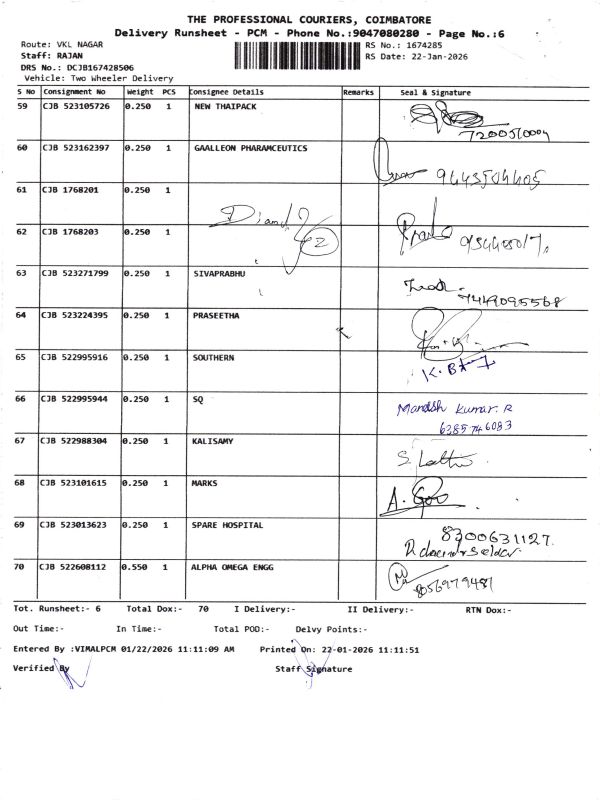 THE PROFESSIONAL COURIERS, COIMBATORE
Delivery Runsheet - PCM - Phone No.:9047080280 - Page No.:6
Route: VKL NAGAR
RS No.: 1674285
Staff: RAJAN
RS Date: 22-Jan-2026
DRS No.: DCJB167428506
Vehicle: Two Wheeler Delivery
S No Consignment No Weight PCS Consignee Details Remarks Seal & Signature
59 CJB 523105726 0.250 1 NEW THAIPACK
60 CJB 523162397 0.250 1 GAALLEON PHARAMCEUTICS
61 CJB 1768201 0.250 1
62 CJB 1768203 0.250 1
63 CJB 523271799 0.250 1 SIVAPRABHU
7449095568
64 CJB 523224395 0.250 1 PRASEETHA
65 CJB 522995916 0.250 1 SOUTHERN
66 CJB 522995944 0.250 1 SQ
Kumar. R
6385746083
67 CJB 522988304 0.250 1 KALISAMY
68 CJB 523101615 0.250 1 MARKS
69 CJB 523013623 0.250 1 SPARE HOSPITAL
8300631127.
70 CJB 522608112 0.550 1 ALPHA OMEGA ENGG
8056979481
Tot. Runsheet:- 6 Total Dox:- 70 I Delivery:- II Delivery:- RTN Dox:-
Out Time:- In Time:- Total POD:- Delvy Points:-
Entered By :VIMALPCM 01/22/2026 11:11:09 AM Printed On: 22-01-2026 11:11:51
Verified By Staff Signature